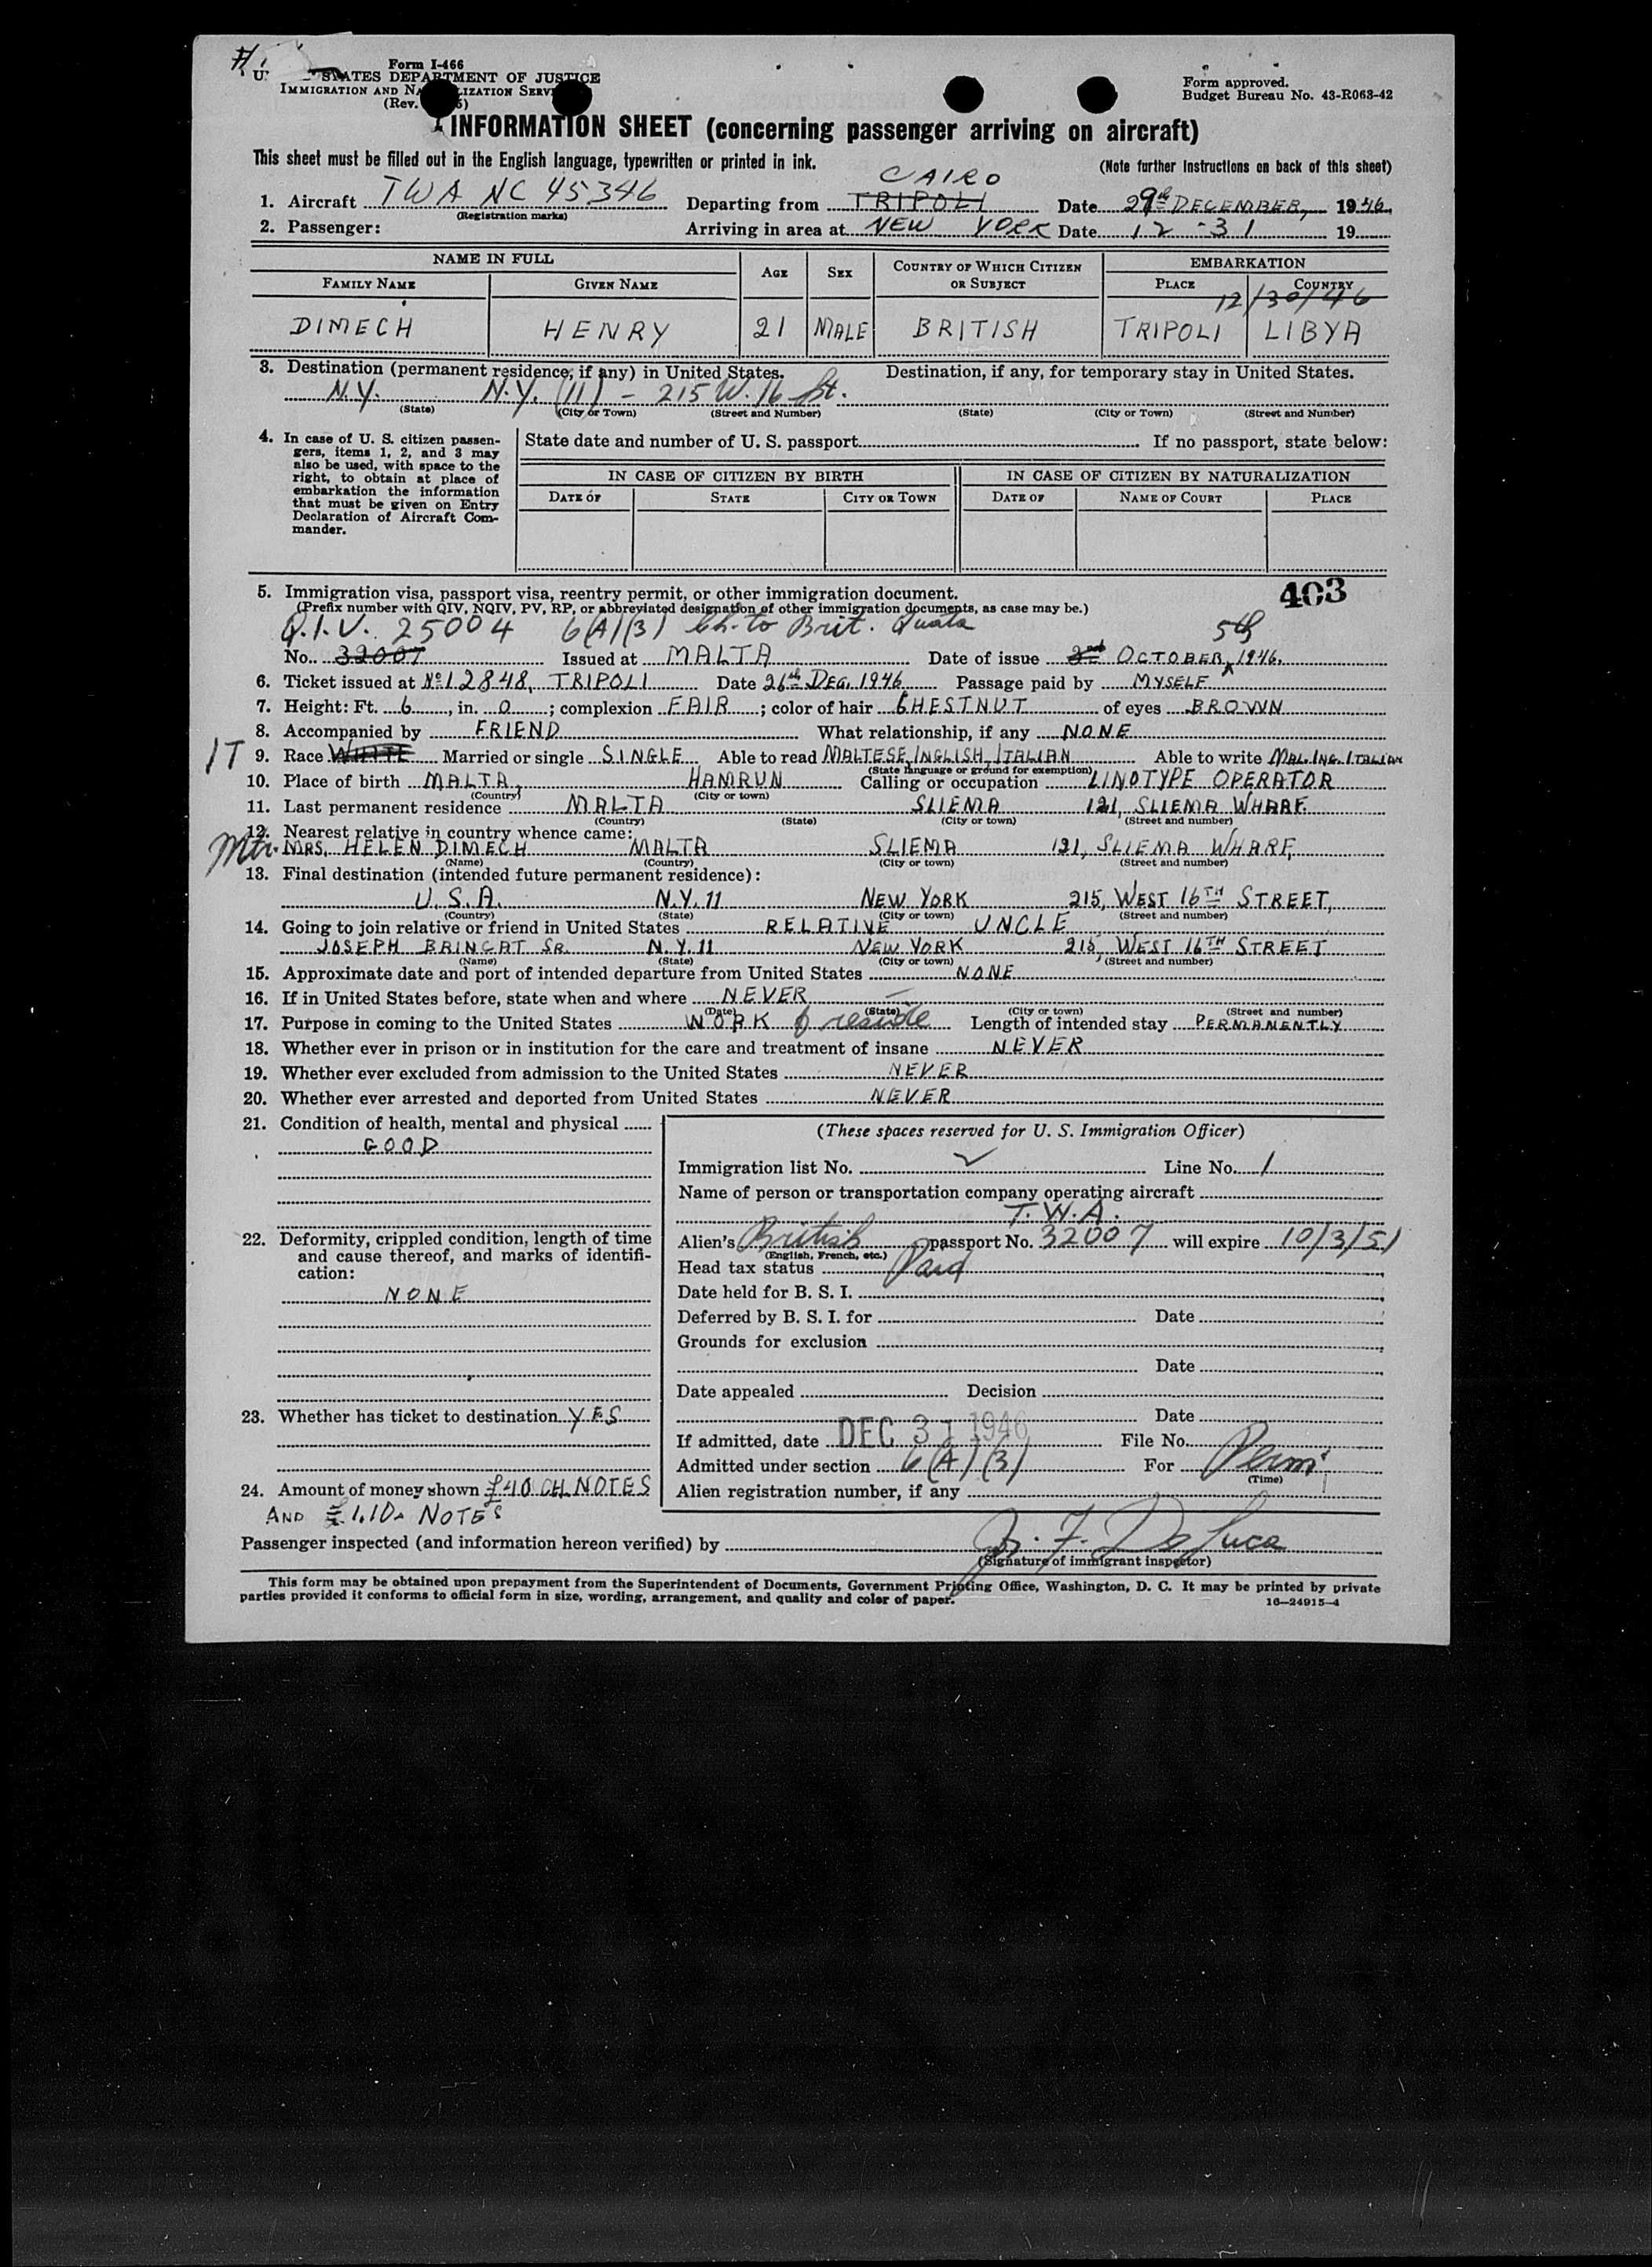 Form I-466
STATES DEPARTMENT OF JUSTICE
IMMIGRATION AND NATURALIZATION SERVICE
(Rev.
Form approved.
Budget Bureau No. 43-R063-42
INFORMATION SHEET (concerning passenger arriving on aircraft)
This sheet must be filled out in the English language, typewritten or printed in ink. (Note further instructions on back of this sheet)
CAIRO
1. Aircraft TWA NC 45346 Departing from TRIPOLI Date 29th DECEMBER, 1946.
(Registration marks)
2. Passenger: Arriving in area at NEW YORK Date 12-31 19
NAME IN FULL AGE SEX COUNTRY OF WHICH CITIZEN OR SUBJECT EMBARKATION
FAMILY NAME GIVEN NAME PLACE COUNTRY
12/30/46
DIMECH HENRY 21 MALE BRITISH TRIPOLI LIBYA
3. Destination (permanent residence, if any) in United States. Destination, if any, for temporary stay in United States.
N.Y. N.Y. (11) - 215 W. 16 St.
(State) (City or Town) (Street and Number) (State) (City or Town) (Street and Number)
4. In case of U. S. citizen passengers, items 1, 2, and 3 may also be used, with space to the right, to obtain at place of embarkation the information that must be given on Entry Declaration of Aircraft Commander.
State date and number of U. S. passport If no passport, state below:
IN CASE OF CITIZEN BY BIRTH IN CASE OF CITIZEN BY NATURALIZATION
DATE OF STATE CITY OR TOWN DATE OF NAME OF COURT PLACE
403
5. Immigration visa, passport visa, reentry permit, or other immigration document.
(Prefix number with QIV, NQIV, PV, RP, or abbreviated designation of other immigration documents, as case may be.)
Q.I.V. 25004 6(A)(3) Ch. to Brit. Quota 5th
No. 32007 Issued at MALTA Date of issue 2nd OCTOBER, 1946.
6. Ticket issued at No 12848, TRIPOLI Date 26th DEC. 1946 Passage paid by MYSELF
7. Height: Ft. 6, in. 0; complexion FAIR; color of hair CHESTNUT of eyes BROWN
8. Accompanied by FRIEND What relationship, if any NONE
IT 9. Race WHITE Married or single SINGLE Able to read MALTESE, INGLISH, ITALIAN Able to write MAL. ING. ITALIAN
(State language or ground for exemption)
10. Place of birth MALTA, HAMRUN Calling or occupation LINOTYPE OPERATOR
(Country) (City or town)
11. Last permanent residence MALTA SLIEMA 121, SLIEMA WHARF.
(Country) (State) (City or town) (Street and number)
12. Nearest relative in country whence came:
Mtr. MRS. HELEN DIMECH MALTA SLIEMA 121, SLIEMA WHARF,
(Name) (Country) (City or town) (Street and number)
13. Final destination (intended future permanent residence):
U.S.A. N.Y. 11 NEW YORK 215, WEST 16TH STREET,
(Country) (State) (City or town) (Street and number)
14. Going to join relative or friend in United States RELATIVE UNCLE
JOSEPH BRINCAT SR. N.Y. 11 NEW YORK 215, WEST 16TH STREET
(Name) (State) (City or town) (Street and number)
15. Approximate date and port of intended departure from United States NONE
16. If in United States before, state when and where NEVER
(Date) (State) (City or town) (Street and number)
17. Purpose in coming to the United States WORK & reside Length of intended stay PERMANENTLY
18. Whether ever in prison or in institution for the care and treatment of insane NEVER
19. Whether ever excluded from admission to the United States NEVER
20. Whether ever arrested and deported from United States NEVER
21. Condition of health, mental and physical
GOOD
22. Deformity, crippled condition, length of time and cause thereof, and marks of identification:
NONE
23. Whether has ticket to destination YES
24. Amount of money shown £40 CH. NOTES
AND £1.10. NOTES
(These spaces reserved for U. S. Immigration Officer)
Immigration list No. Line No. 1
Name of person or transportation company operating aircraft
T.W.A.
Alien's British passport No. 32007 will expire 10/3/51
(English, French, etc.)
Head tax status Paid
Date held for B. S. I.
Deferred by B. S. I. for Date
Grounds for exclusion
Date
Date appealed Decision
Date
If admitted, date DEC 31 1946 File No.
Admitted under section 6(A)(3) For Perm.
(Time)
Alien registration number, if any
Passenger inspected (and information hereon verified) by F. De Luca
(Signature of immigrant inspector)
This form may be obtained upon prepayment from the Superintendent of Documents, Government Printing Office, Washington, D. C. It may be printed by private
parties provided it conforms to official form in size, wording, arrangement, and quality and color of paper.
16—24915-4